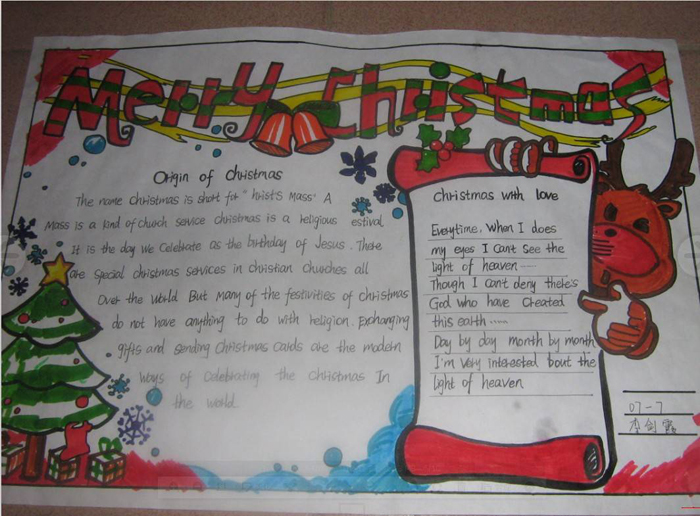 Merry Christmas
Origin of Christmas
The name christmas is short for "hrist's Mass" A
Mass is a kind of church service christmas is a religious estival
It is the day we celebrate as the birthday of Jesus. There
are special christmas services in christian churches all
Over the World But many of the festivities of christmas
do not have anything to do with religion. Exchanging
gifts and sending Christmas cards are the modern
ways of celebrating the christmas In
the world.
Christmas with love
Everytime, When I does
my eyes I can't see the
light of heaven
Though I can't deny there's
God who have created
this earth .....
Day by day month by month
I'm very interested bout the
light of heaven
07-7
李剑露